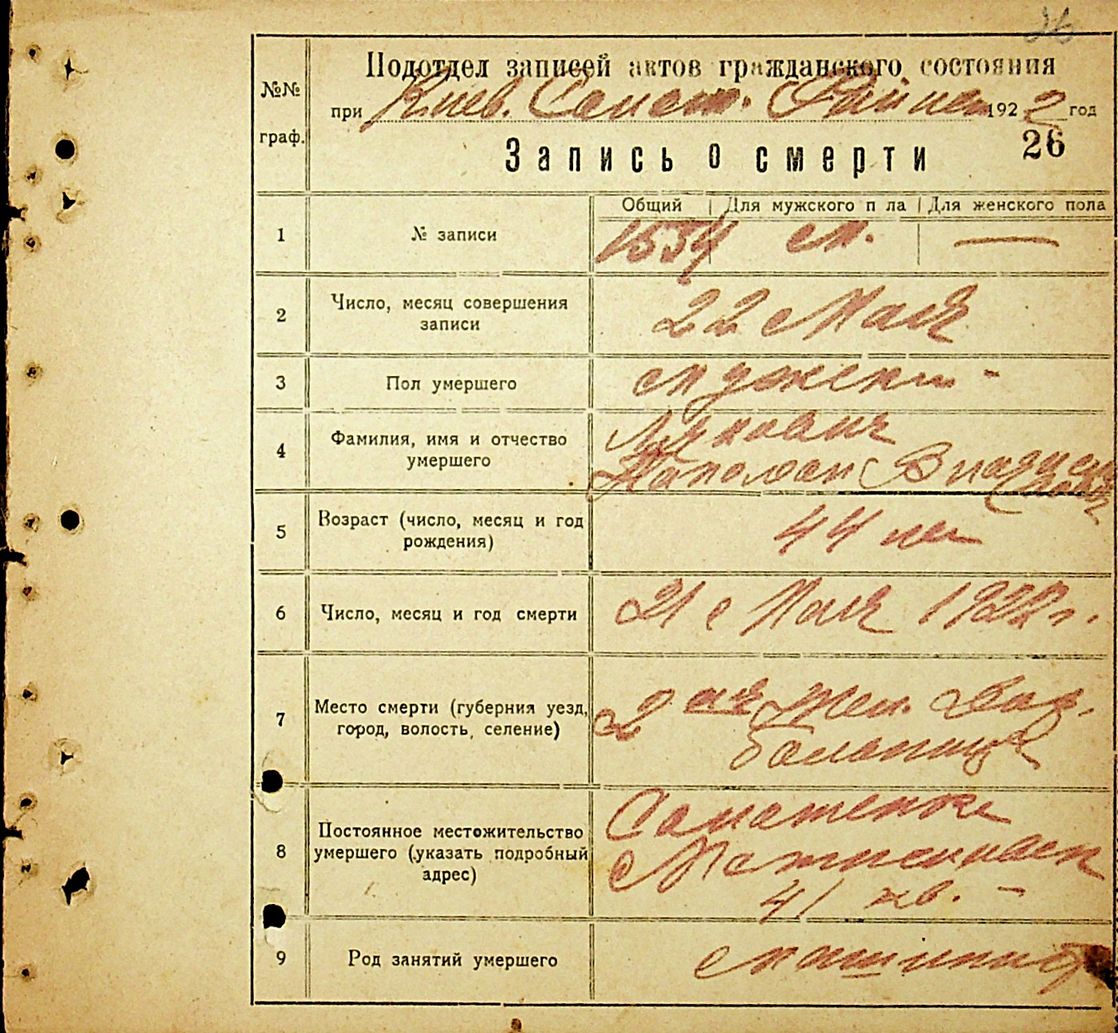 26
Подотдел записей актов гражданского состояния
№№ граф.
при Киев. 1922 год
26
Запись о смерти
Общий Для мужского п ла Для женского пола
1 № записи 1554 м. —
2 Число, месяц совершения записи 22 Мая
3 Пол умершего мужской -
4 Фамилия, имя и отчество умершего
5 Возраст (число, месяц и год рождения) 44 лет
6 Число, месяц и год смерти 21 Мая 1922 г.
7 Место смерти (губерния уезд, город, волость, селение) 2 ая Жел. Дор.
больница
8 Постоянное местожительство умершего (указать подробный адрес) Соломенка
41 кв. —
9 Род занятий умершего машинист